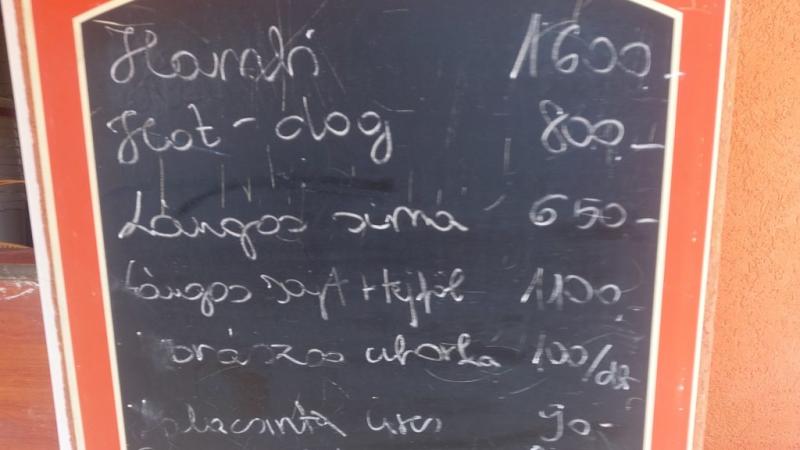 Hambi 1600.-
Hot-dog 800.-
Lángos sima 650.-
Lángos sajt+tejföl 1100.
Kovászos uborka 100/db
Palacsinta üres 90.-